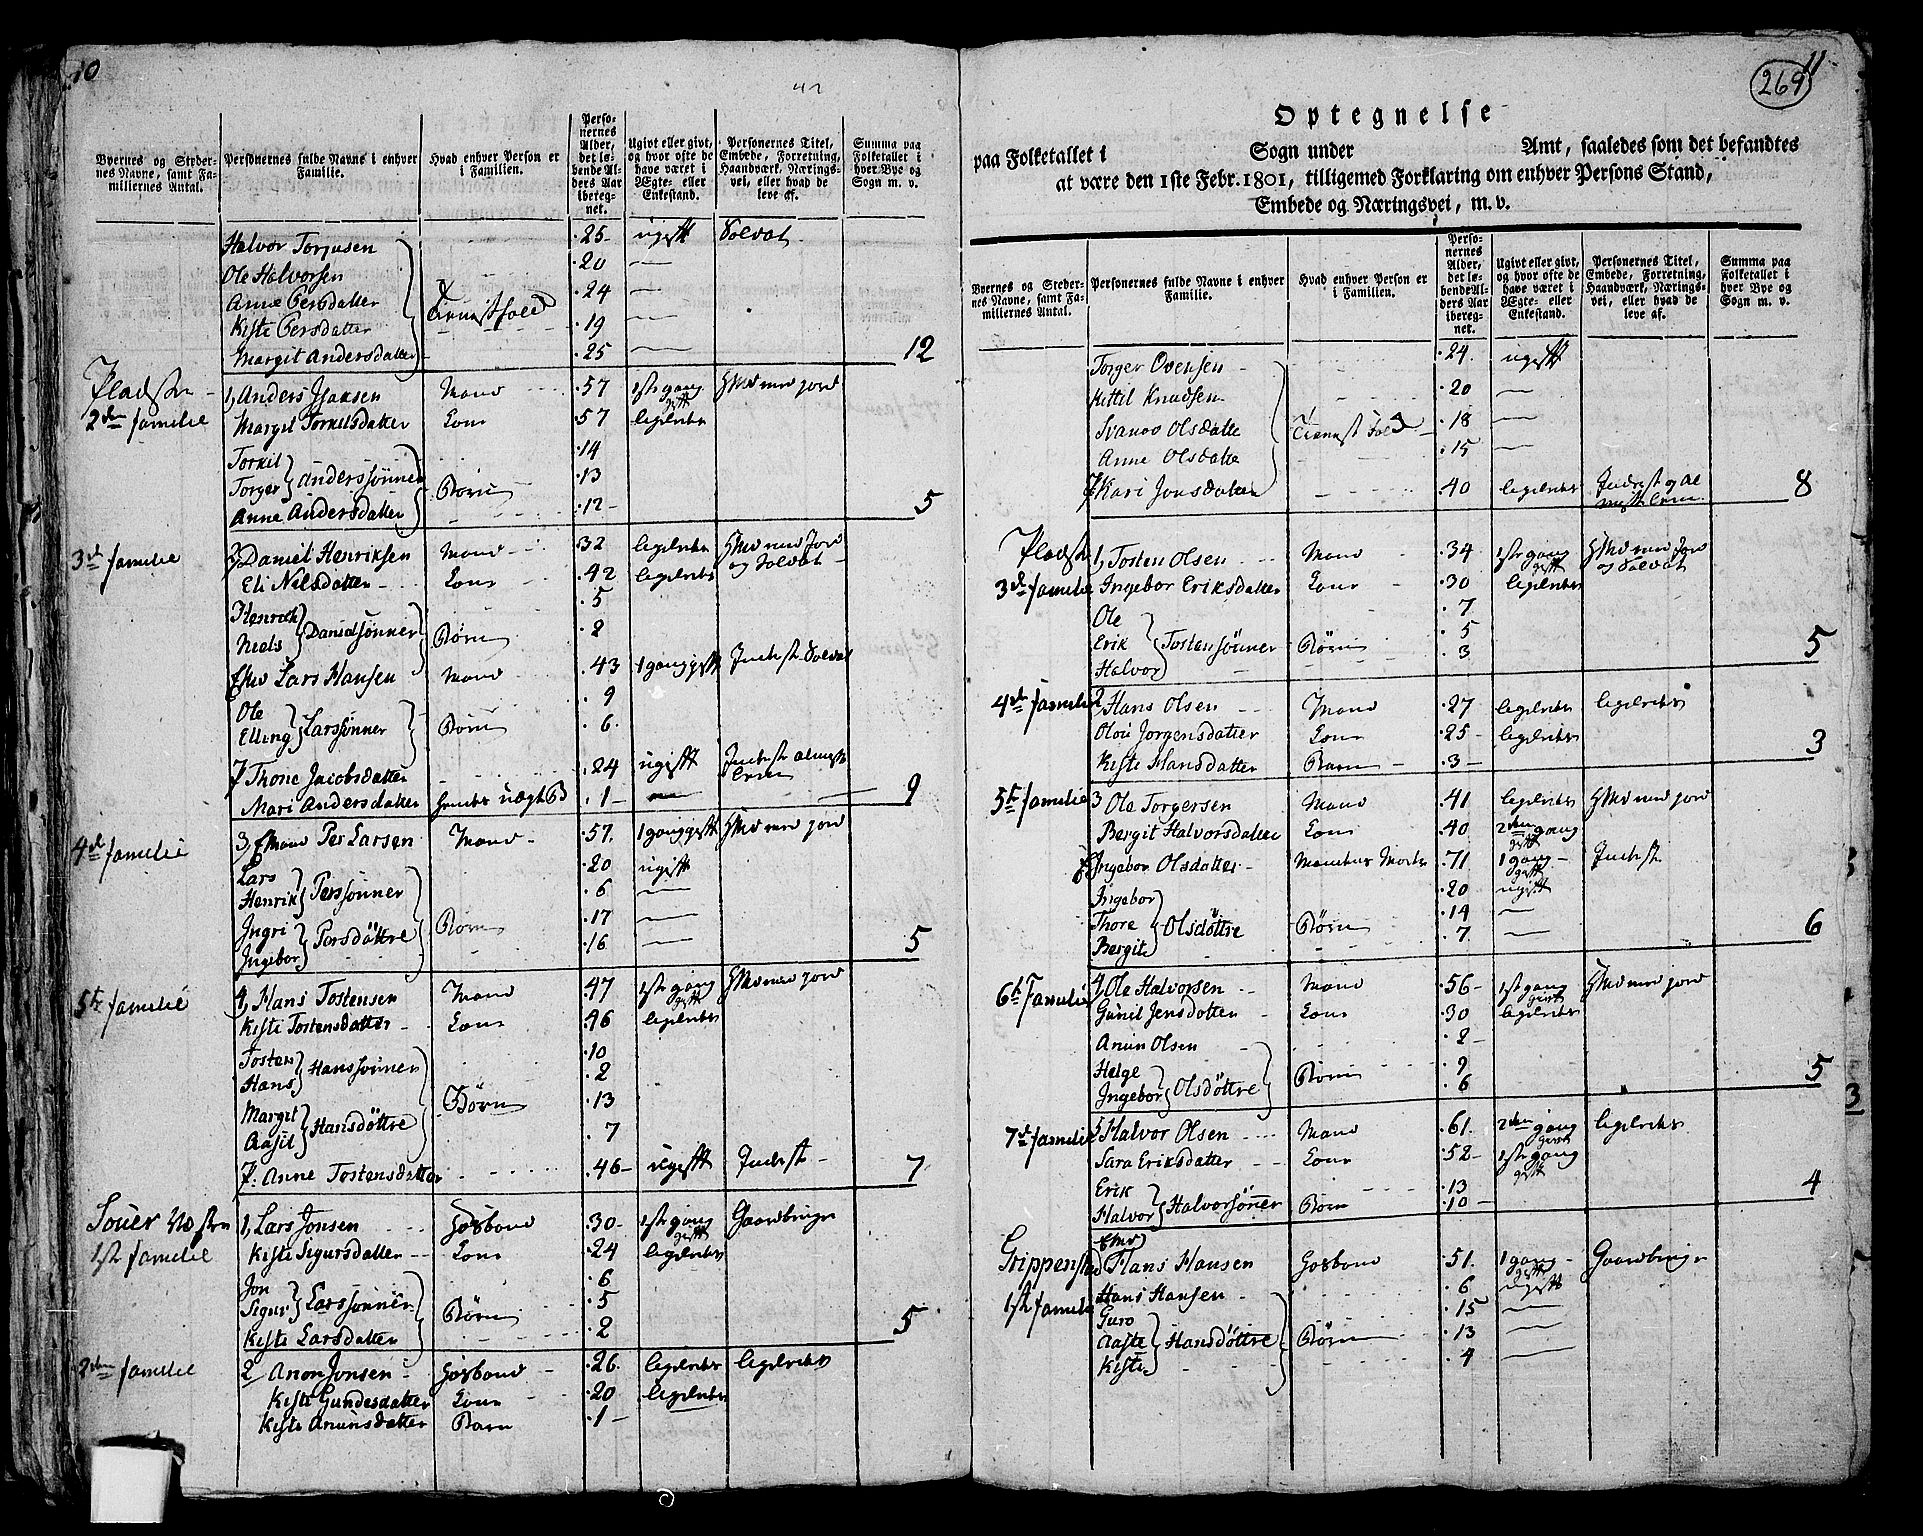 10
Byernes og Steder-
nes Navne, samt Fa-
miliernes Antal.
Personernes fulde Navne i enhver
Familie.
Hvad enhver Person er
i Familien.
Perso-
nernes
Alder,
det le-
bende Al-
ders Aar
ibereg-
net.
Ugivt eller givt,
og hvor ofte de
have været i
Ægte- eller
Enkestand.
Personernes Titel,
Embede, Forretning,
Haandværk, Nærings-
vei, eller hvad de
leve af.
Summa paa
Folketallet i
hver Bye og
Sogn m. v.
Halvor Torjusen 25 ugift Soldat
Ole Halvorsen 20 —
Anne Persdatter 24 —
Kiste Persdatter Tienistfolk 19 —
Margit Andersdatter 25 — 12
Pladser
2den familie
1, Anders Isaksen Mand 57 1ste gang gift Hmd med jord
Margit Torkilsdatter Kone 57 ligeledes
Torkil 14
Torger } Anderssønner Børn 13
Anne Andersdatter 12 5
3die familie
2, Daniel Henriksen Mand 32 ligeledes Hmd med Jord
Eli Nilsdatter Kone 42 ligeledes og Soldat
Henrich 5
Niels } Danielsønner Børn 2
Emd Lars Hansen Mand 43 1 gang gift Inderst Soldat
Ole 9
Elling } Larssønner Børn 6
7 Thone Jacobsdatter 24 ugift Inderst almisse
Mari Andersdatter hendes uægt B 1 — 9
4de familie
3, Emand Per Larsen Mand 57 1 gang gift Hmd med jord
Lars 20 ugift
Henrik } Perssønner 6 —
Ingri Børn 17 —
Ingebor } Persdøttre 16 — 5
5te familie
4, Hans Tostensen Mand 47 1ste gang gift Hmd med jord
Kiste Tostensdatter Kone 46 ligeledes
Tosten 10
Hans } Hanssønner 2
Margit Børn 13
Aasil } Hansdøttre 7
7. Anne Tostensdatter 46 ugift Inderst 7
1ste familie
1, Lars Jonsen Hosbond 30 1ste gang gift Gaardbruger
Kiste Sigursdatter Kone 24 ligeledes
Jon 6
Sigur } Larssønner Børn 5
Kiste Larsdatter 2 5
2den familie
2 Anon Jonsen Hosbond 26 ligeledes ligeledes
Kiste Gundesdatter Kone 20 ligeledes
Kiste Anunsdatter Barn 1
269
11
Optegnelse
paa Folketallet i Sogn under Amt, saaledes som det befandtes
at være den 1ste Febr. 1801, tilligemed Forklaring om enhver Persons Stand,
Embede og Næringsvei, m. v.
Byernes og Steder-
nes Navne, samt Fa-
miliernes Antal.
Personernes fulde Navne i enhver
Familie.
Hvad enhver Person er
i Familien.
Perso-
nernes
Alder,
det le-
bende Al-
ders Aar
ibereg-
net.
Ugivt eller givt,
og hvor ofte de
have været i
Ægte- eller
Enkestand.
Personernes Titel,
Embede, Forretning,
Haandværk, Nærings-
vei, eller hvad de
leve af.
Summa paa
Folketallet i
hver Bye og
Sogn m. v.
Torger Ovensen 24 ugift
Kittil Knudsen 20 —
Svanoo Olsdatte Tienest Folk 18 —
Anne Olsdatte 15 —
7 Kari Jonsdatter 40 ligeledes Inderst og al 8
Pladser
3die familie
1, Tosten Olsen Mand 34 1ste gang gift Hmd med jord
Ingebor Eriksdatter Kone 30 ligeledes og Soldat
Ole 7
Erik } Tostensønner Børn 5
Halvor 3 5
4de familie
2 Hans Olsen Mand 27 ligeledes ligeledes
Olou Jorgensdatter Kone 25 ligeledes
Kiste Hansdatter Barn 3 3
5te familie
3 Ole Torgersen Mand 41 ligeledes Hmd med jord
Bergit Halvorsdatter Kone 40 2den gang gift
Ingebor Olsdatter Mandens Moder 71 1 gang gift Inderst
Ingebor 20 ugift
Thore } Olsdøttre Børn 14 —
Bergit 7 — 6
6te Familie
4, Ole Halvorsen Mand 56 1ste gang gift Hmd med jord
Gunil Jensdatter Kone 30 ligeledes
Anun Olsen 2
Helge Børn 9
Ingebor } Olsdøttre 6 5
7de familie
5 Halvor Olsen Mand 61 2den gang gift ligeledes
Sara Eriksdatter Kone 52 1ste gang gift
Erik 13
Halvor } Halvorsønner Børn 10 4
Grippenstad
1ste familie
Emd
Hans Hansen Hosbond 51 1 gang gift Gaardbruger
Hans Hansen 6 ugift
Guro 15 —
Aaste } Hansdøttre Børn 13 —
Kiste 4 —